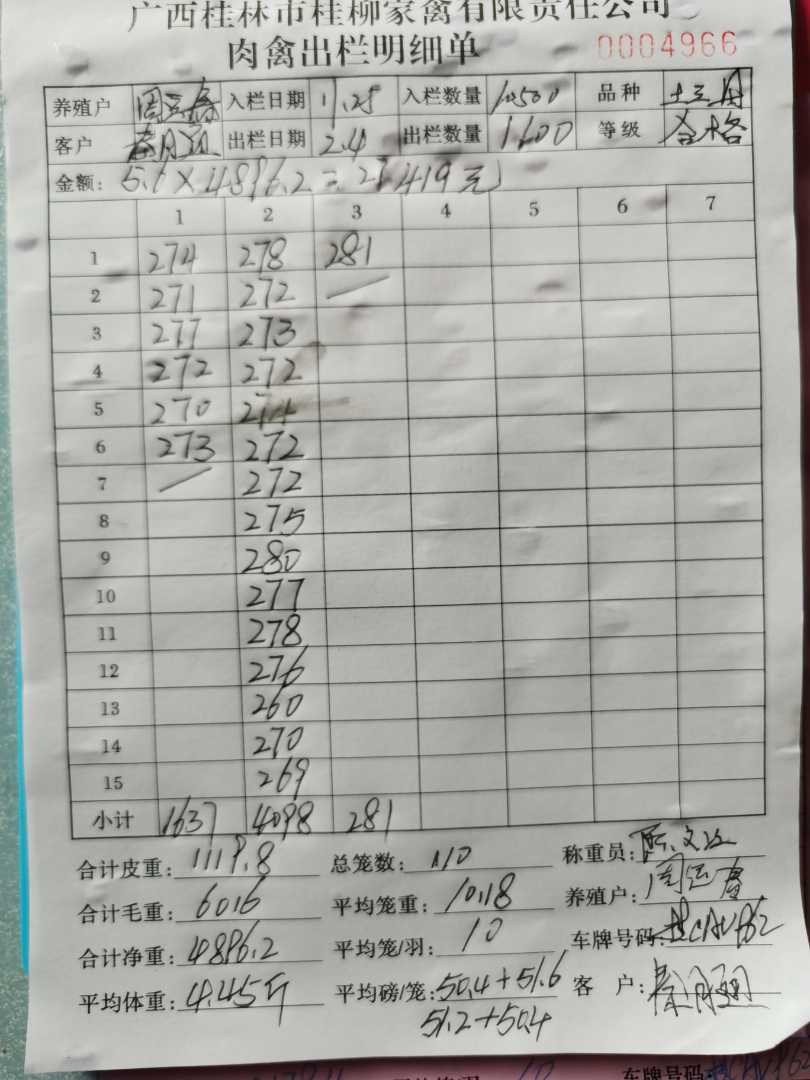 广西桂林市桂柳家禽有限责任公司
肉禽出栏明细单 0004966
养殖户 周运春 入栏日期 11.25 入栏数量 10500 品种
客户 秦月 出栏日期 2.4 出栏数量 1100 等级 合格
金额: 5.6×4896.2=27419元
1 2 3 4 5 6 7
1 274 278 281
2 271 272 —
3 277 273
4 272 272
5 270 274
6 273 272
7 — 272
8 275
9 280
10 277
11 278
12 276
13 260
14 270
15 269
小计 1637 4098 281
合计皮重: 1119.8 总笼数: 110 称重员:
合计毛重: 6016 平均笼重: 10.18 养殖户: 周运春
合计净重: 4896.2 平均笼/羽: 10 车牌号码:
平均体重: 4.45斤 平均磅/笼: 50.4+51.6 客 户: 秦月
51.2+50.4
10 车牌号码: